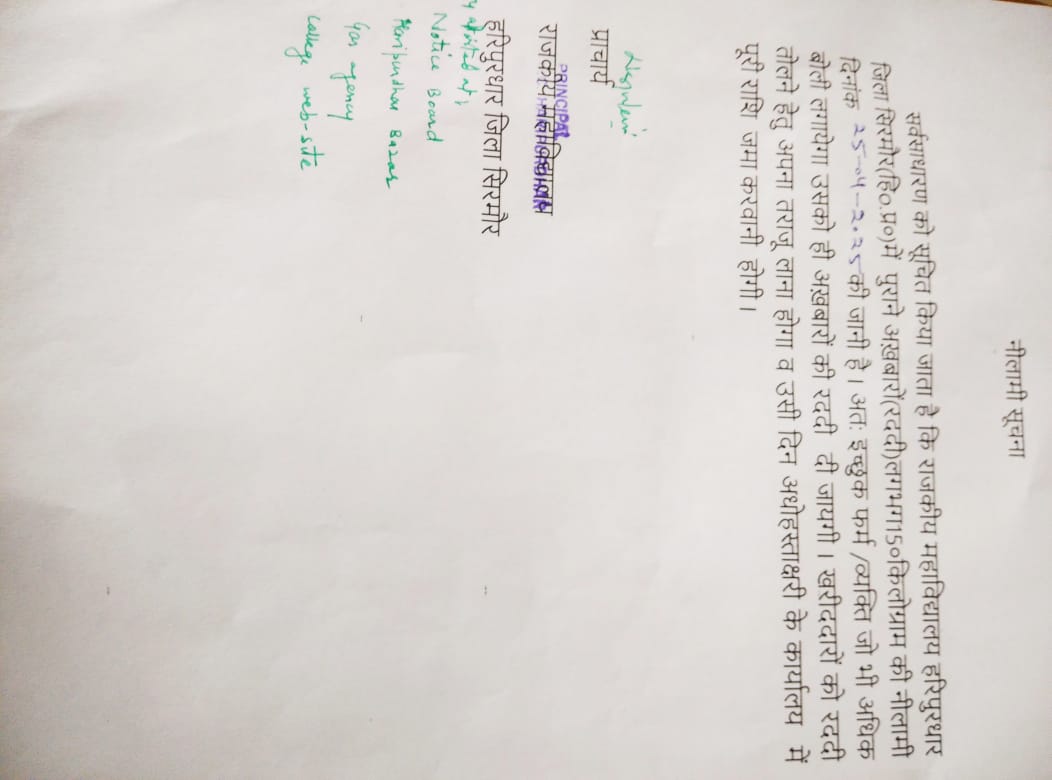 नीलामी सूचना
सर्वसाधारण को सूचित किया जाता है कि राजकीय महाविद्यालय हरिपुरधार
जिला सिरमौर(हि०.प्र०)में पुराने अख़बारों(रददी)लगभग150किलोग्राम की नीलामी
दिनांक 25-04-2025 की जानी है । अतः इच्छुक फर्म /व्यक्ति जो भी अधिक
बोली लगायेगा उसको ही अख़बारों की रददी दी जायगी । खरीददारों को रददी
तोलने हेतु अपना तराजू लाना होगा व उसी दिन अधोहस्ताक्षरी के कार्यालय में
पूरी राशि जमा करवानी होगी ।
प्राचार्य
PRINCIPAL
राजकीय महाविद्यालय
हरिपुरधार जिला सिरमौर
Notice Board
Haripurdhar Bazar
Gas agency
College web-site